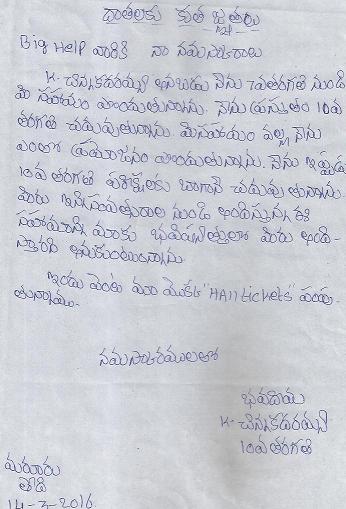 దాతలకు కృతజ్ఞతలు
Big Help వారికి నా నమస్కారాలు
K. చిన్నకదరమ్మ అనబడు నేను 7వతరగతి నుండి
మీ సహాయం పొందుతున్నాను. నేను ప్రస్తుతం 10వ
తరగతి చదువుతున్నాను. మీసహయం వల్ల నేను
ఎంతో ప్రయోజనం పొందుతున్నాను. నేను ఇప్పుడు
10వ తరగతి పరీక్షలకు బాగానే చదువుతున్నాను.
మీరు ఇన్నిసంవత్సరాల నుండి అందిస్తున్న ఈ
సహాయాన్ని మాకు భవిషత్తులో మీరు అంది-
స్తారని అనుకుంటున్నాను.
ఇందు వెంట మా యొక్క "HAll tickets" పంపు-
తున్నాము.
నమస్కారములతో
భవదీయ
K. చిన్నకదరమ్మ
10వ తరగతి
తేది
14-3-2016